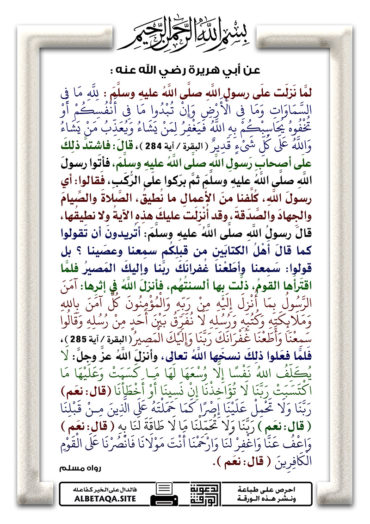 بسم الله الرحمن الرحيم
عن أبي هريرة رضي الله عنه :
لمَّا نزلَت علَى رسولِ اللهِ صلَّى اللهُ عليهِ وسلَّمَ : لِلَّهِ مَا فِي
السَّمَاوَاتِ وَمَا فِي الْأَرْضِ وَإِنْ تُبْدُوا مَا فِي أَنْفُسِكُمْ أَوْ
تُخْفُوهُ يُحَاسِبْكُمْ بِهِ اللَّهُ فَيَغْفِرُ لِمَنْ يَشَاءُ وَيُعَذِّبُ مَنْ يَشَاءُ
وَاللَّهُ عَلَى كُلِّ شَيْءٍ قَدِيرٌ ( البقرة / آية 284 )، قال: فاشتد ذلك
علَى أصحابِ رسولِ اللهِ صلَّى اللهُ عليهِ وسلَّمَ، فأتوا رسولَ
اللهِ صلَّى اللهُ عليهِ وسلَّمَ ثمَّ برَكوا علَى الرُّكَبِ، فقالوا: أي
رسولَ اللهِ، كُلِّفنا منَ الأعمالِ ما نُطيقُ، الصَّلاةَ والصِّيامَ
والجهادَ والصَّدقةَ، وقد أُنزِلَت عليكَ هذهِ الآيةُ ولا نطيقُها،
قالَ رسولُ اللهِ صلَّى اللهُ عليهِ وسلَّمَ: أتريدونَ أن تقولوا
كما قالَ أهلُ الكتابَينِ من قبلِكُم سمِعنا وعصَينا ؟ بل
قولوا: سَمِعنا وأطَعْنَا غفرانَكَ ربَّنا وإليكَ المَصيرُ فلمَّا
اقترأَها القومُ، ذلَّت بها ألسنتُهُم، فأنزلَ اللهُ في إثرِها: آمَنَ
الرَّسُولُ بِمَا أُنْزِلَ إِلَيْهِ مِنْ رَبِّهِ وَالْمُؤْمِنُونَ كُلٌّ آمَنَ بِاللَّهِ
وَمَلَائِكَتِهِ وَكُتُبِهِ وَرُسُلِهِ لَا نُفَرِّقُ بَيْنَ أَحَدٍ مِنْ رُسُلِهِ وَقَالُوا
سَمِعْنَا وَأَطَعْنَا غُفْرَانَكَ رَبَّنَا وَإِلَيْكَ الْمَصِيرُ ( البقرة / آية 285 )،
فلمَّا فعلوا ذلِكَ نسخَها اللهُ تعالى، وأنزلَ اللهُ عزَّ وجلَّ: لَا
يُكَلِّفُ اللَّهُ نَفْسًا إِلَّا وُسْعَهَا لَهَا مَا كَسَبَتْ وَعَلَيْهَا مَا
اكْتَسَبَتْ رَبَّنَا لَا تُؤَاخِذْنَا إِنْ نَسِينَا أَوْ أَخْطَأْنَا ( قال: نعَم )
رَبَّنَا وَلَا تَحْمِلْ عَلَيْنَا إِصْرًا كَمَا حَمَلْتَهُ عَلَى الَّذِينَ مِنْ قَبْلِنَا
( قال: نعَم ) رَبَّنَا وَلَا تُحَمِّلْنَا مَا لَا طَاقَةَ لَنَا بِهِ ( قال: نعَم )
وَاعْفُ عَنَّا وَاغْفِرْ لَنَا وَارْحَمْنَا أَنْتَ مَوْلَانَا فَانْصُرْنَا عَلَى الْقَوْمِ
الْكَافِرِينَ ( قال: نعَم ).
رواه مسلم
احرص على طباعة
ونشر هذه الورقة
فالدال على الخير كفاعله
ALBETAQA.SITE